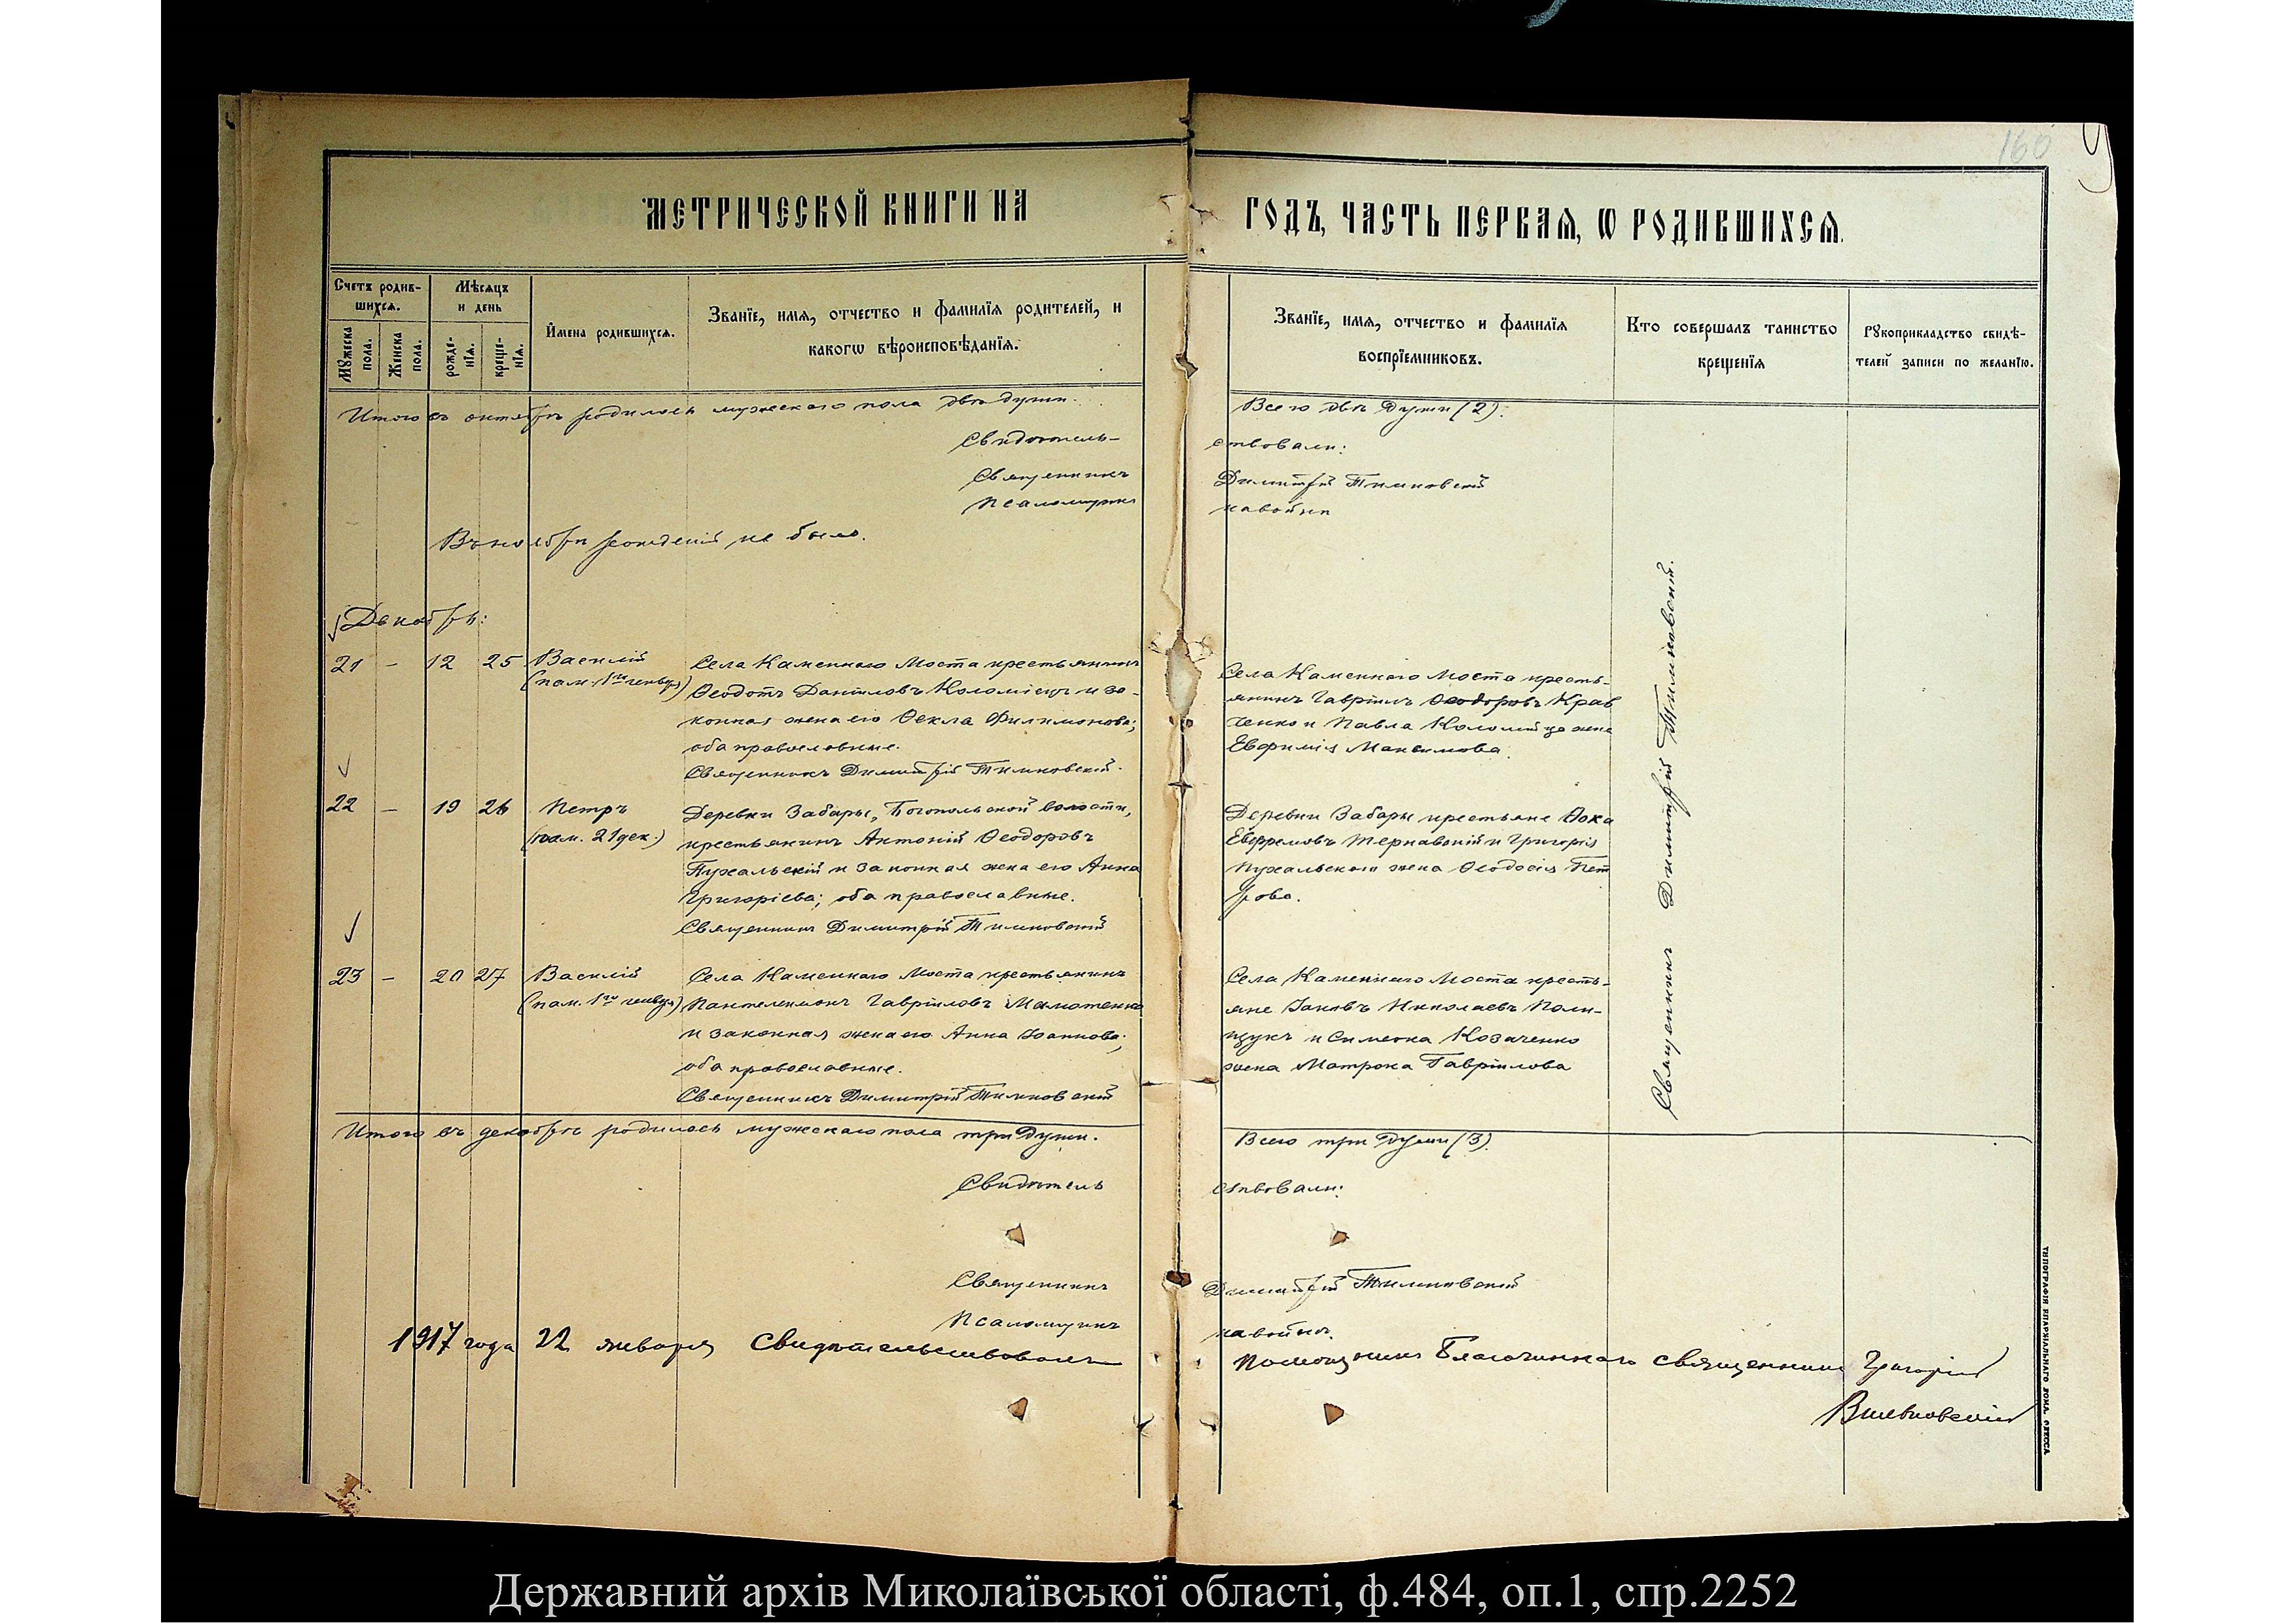 160
МЕТРИЧЕСКОЙ КНИГИ НА ГОДЪ, ЧАСТЬ ПЕРВАЯ, Ѡ РОДИВШИХСЯ.
Счетъ родившихся.
Мужеска пола.
Женска пола.
Мѣсяцъ и день
рожденїя.
крещенїя.
Имена родившихся.
Званїе, имя, отчество и фамилїя родителей, и
какогѡ вѣроисповѣданїя.
Званїе, имя, отчество и фамилїя
воспрїемниковъ.
Кто совершалъ таинство
крещенїя
Рукоприкладство свидѣ-
телей записи по желанїю.
Итого въ октябрѣ родилось мужескаго пола двѣ души. Всего двѣ души (2).
Свидѣтель-ствовали:
Священникъ Димитрій Тимковскій
Псаломщикъ
Въ ноябрѣ рожденій не было.
Декабрь:
21 - 12 25 Василій
(пам. 1го генвря)
Села Каменнаго Моста крестьянинъ
Ѳеодотъ Даніиловъ Коломіецъ и за-
конная жена его Ѳекла Филимонова;
оба православные.
Священникъ Димитрій Тимковскій.
Села Каменнаго Моста кресть-
янинъ Гавріилъ Ѳеодоровъ Крав
ченко и Павла Коломійца жена
Евфимія Максимова.
22 - 19 26 Петръ
(пам. 21 дек.)
Деревни Забары, Богопольской волости,
крестьянинъ Антоній Ѳеодоровъ
Пухальскій и законная жена его Анна
Григоріева; оба православные.
Священникъ Димитрій Тимковскій
Деревни Забары крестьяне Ѳока
Ефремовъ Тернавскій и Григорія
Пухальскаго жена Ѳеодосія Пет
рова.
23 - 20 27 Василій
(пам. 1го генвря)
Села Каменнаго Моста крестьянинъ
Пантелеимонъ Гавріиловъ Маматенко
и законная жена его Анна Іоаннова;
оба православные.
Священникъ Димитрій Тимковскій
Села Каменнаго Моста кресть-
яне Іаковъ Николаевъ Поли-
щукъ и Симеона Козаченко
жена Матрона Гавріилова
Священникъ Димитрій Тимковскій.
Итого въ декабрѣ родилось мужескаго пола три души. Всего три души (3).
Свидѣтель ствовали:
Священникъ Димитрій Тимковскій
Псаломщикъ
1917 года 22 января Свидѣтельствовалъ Помощникъ Благочиннаго священникъ Григорій
ТИПОГРАФІЯ ЕПАРХІАЛЬНАГО ДОМА. ОДЕССА
Державний архів Миколаївської області, ф.484, оп.1, спр.2252